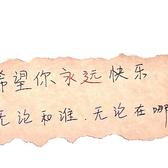 希望你永远快乐
无论和谁.无论在哪